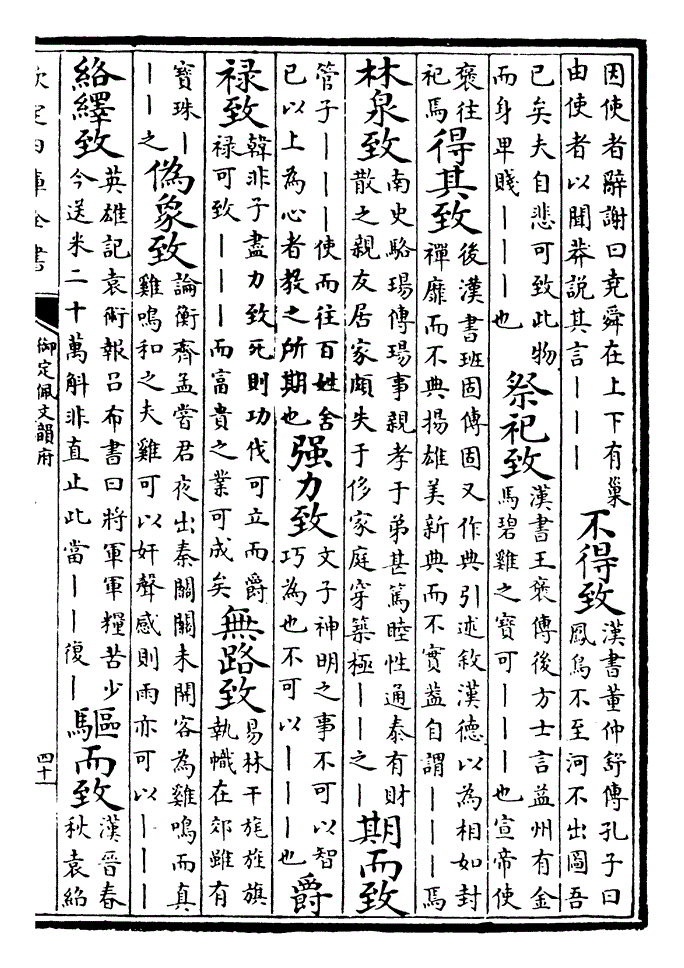 因使者辭謝曰堯舜在上下有巢
由使者以聞莽說其言｜｜｜
不得致
漢書董仲舒傳孔子曰
鳳鳥不至河不出圖吾
已矣夫自悲可致此物
而身卑賤｜｜｜也
祭祀致
漢書王褒傳後方士言益州有金
馬碧雞之寶可｜｜｜也宣帝使
褒往
祀焉
得其致
後漢書班固傳固又作典引述敘漢德以為相如封
禪靡而不典揚雄美新典而不實葢自謂｜｜｜焉
林泉致
南史駱瑒傳瑒事親孝于弟甚篤睦性通泰有財
散之親友居家頗失于侈家庭穿築極｜｜之｜
期而致
管子｜｜｜使而往百姓舍
已以上為心者教之所期也
强力致
文子神明之事不可以智
巧為也不可以｜｜｜也
爵
禄致
韓非子盡力致死則功伐可立而爵
禄可致｜｜｜而富貴之業可成矣
無路致
易林干旄旌旗
執幟在郊雖有
寶珠｜
｜｜之
偽象致
論衡齊孟嘗君夜出秦關關未開客為雞鳴而真
雞鳴和之夫雞可以奸聲感則雨亦可以｜｜｜
絡繹致
英雄記袁術報吕布書曰將軍軍糧苦少
今送米二十萬斛非直止此當｜｜復｜
驅而致
漢晉春
秋袁紹
欽定四庫全書
御定佩文韻府
四十